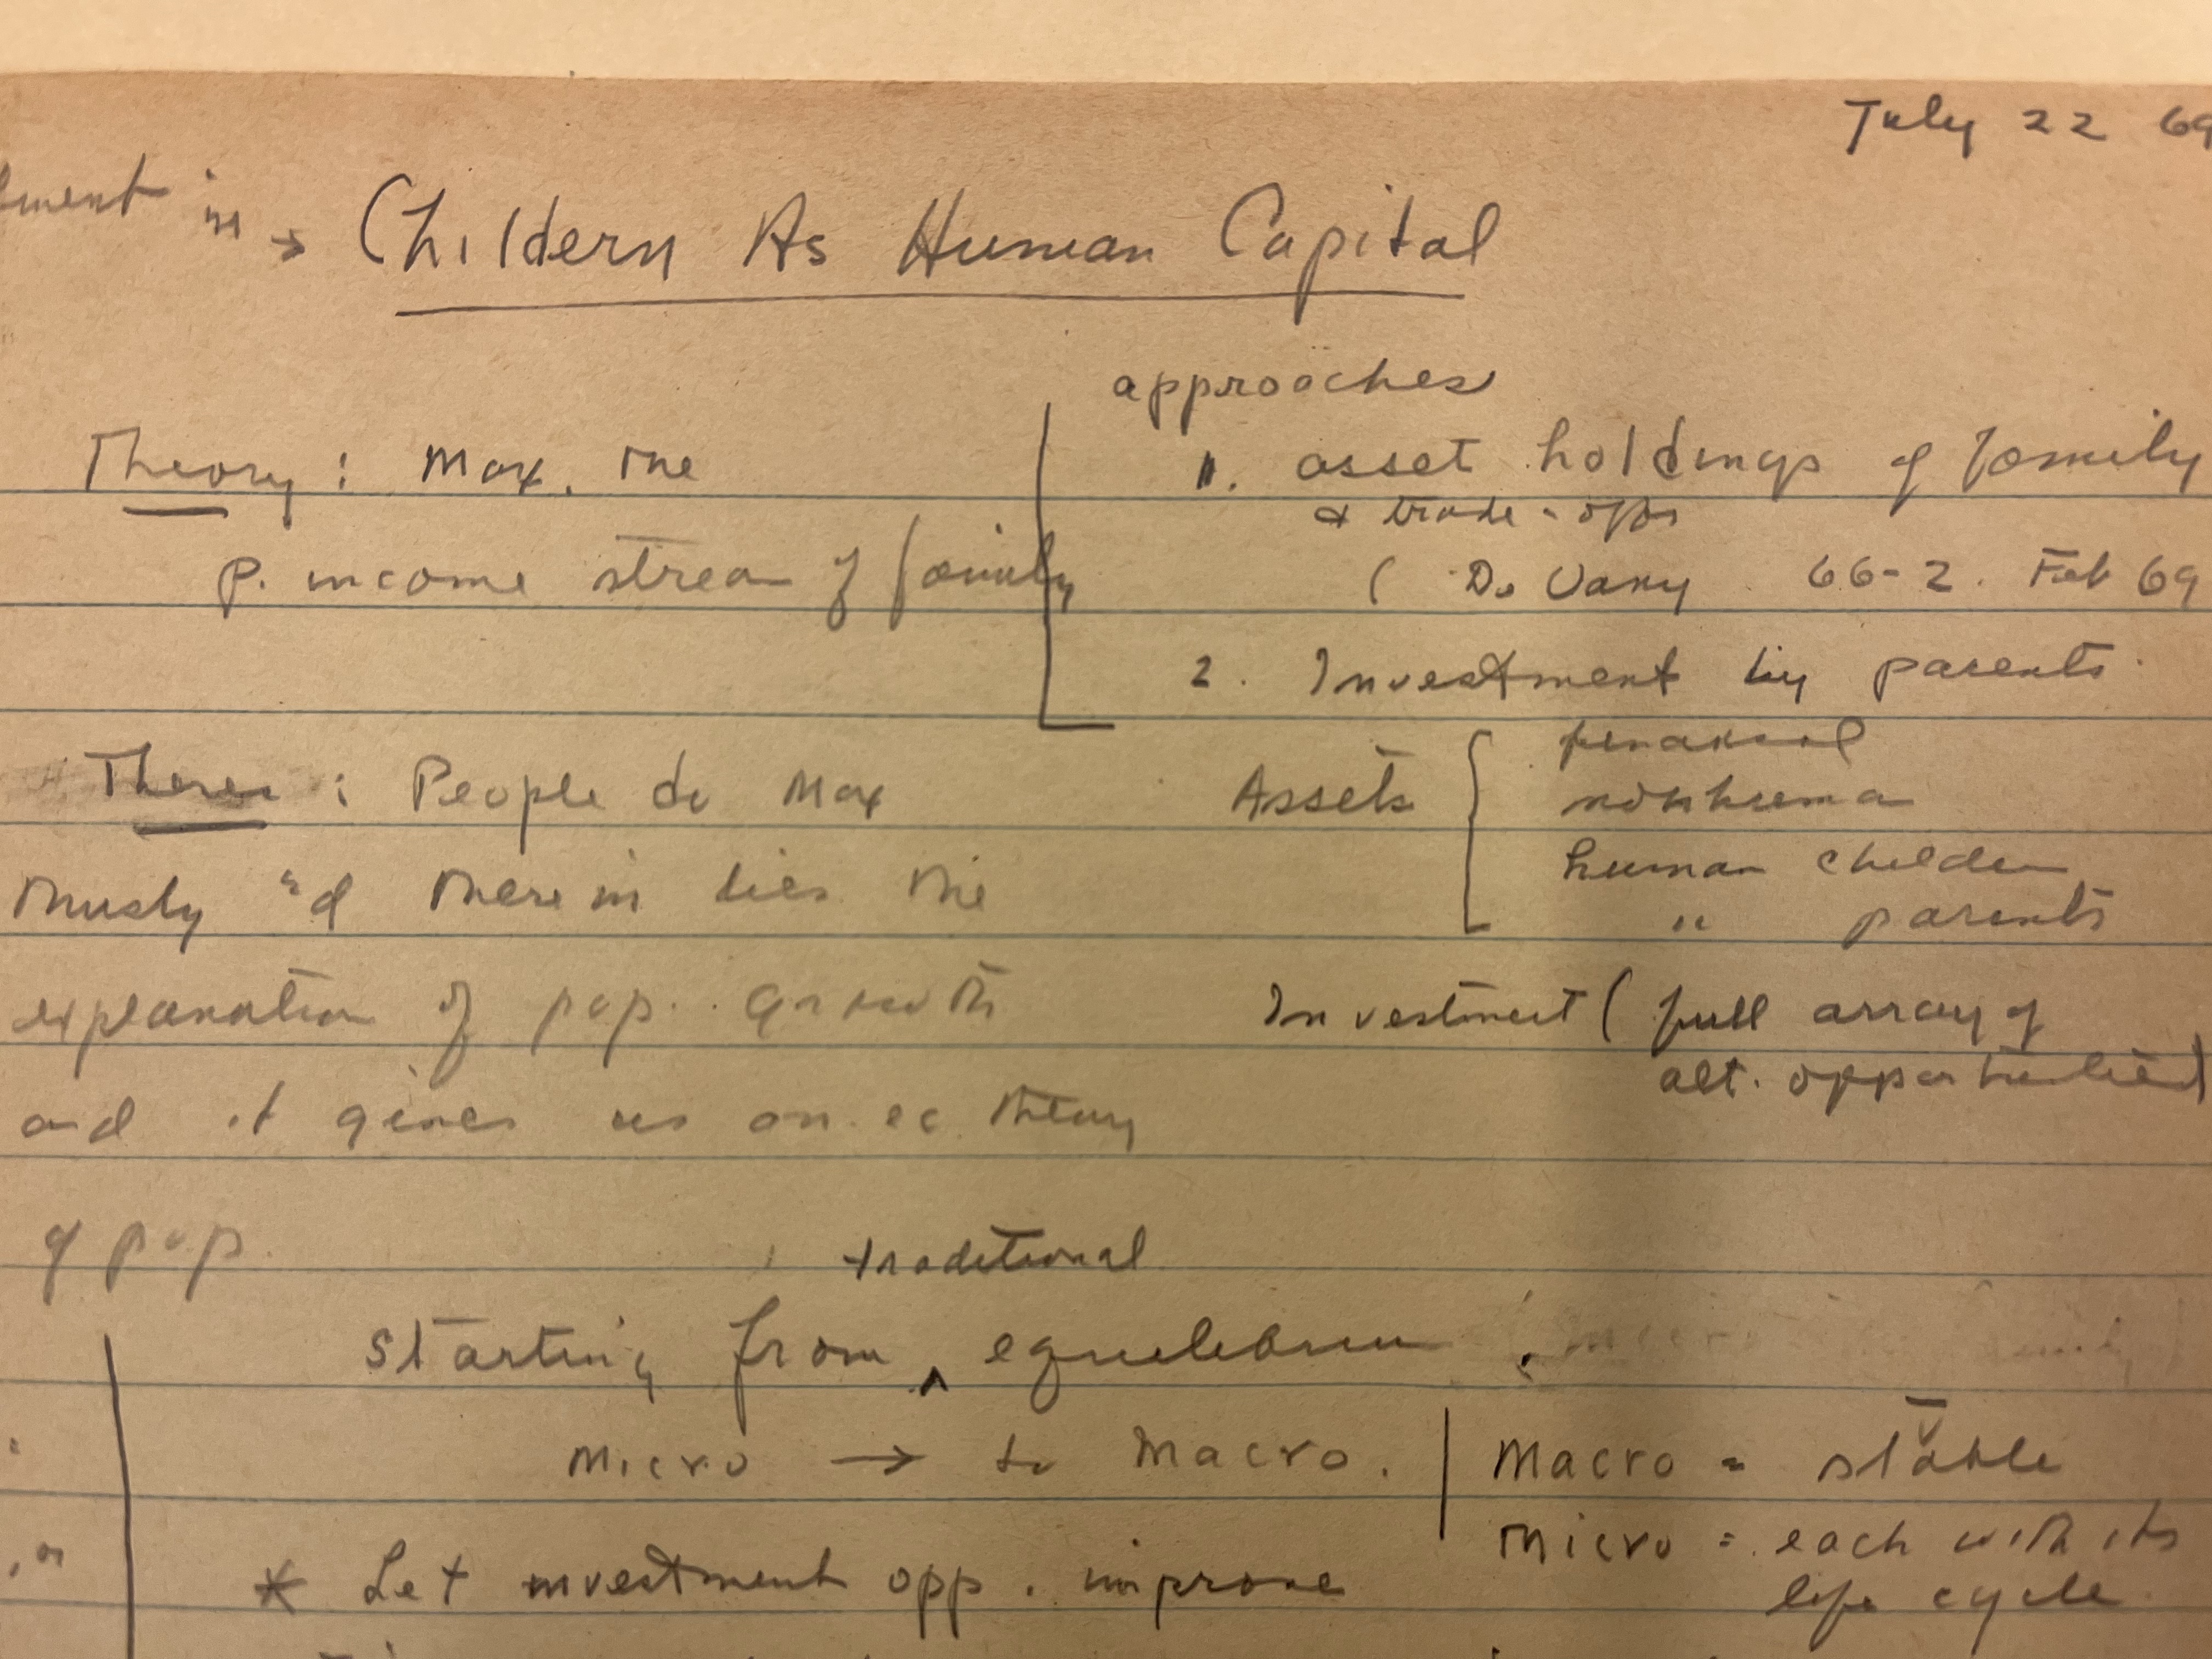 July 22 69
in → Childern As Human Capital
approaches
Theory: Max. the
p. income stream of family
1. asset holdings of family
& trade-offs
( De Vany 66-2. Feb 69
2. Investment by parents
Thesis: People do max
thusly and therein lies the
explanation of pop. growth
and it gives us an ec. theory
of pop.
Assets {
nonhuman
human children
" parents
Investment ( full array of
alt. opportunities)
traditional
starting from ^ equilibrium.
micro → to Macro.
Macro = stable
micro = each with its
life cycle
* Let investment opp. improve